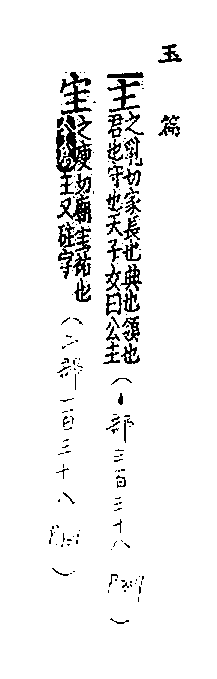 玉篇
主
之乳切家長也典也領也
君也守也天子女曰公主
(丶部三百三十八)
宔
之庾切廟宔祏也
主又砫字
(宀部一百三十八)